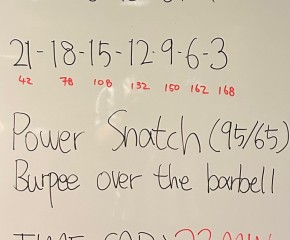 21-18-15-12-9-6-3
42 78 108 132 150 162 168
Power Snatch (95/65)
Burpee over the barbell